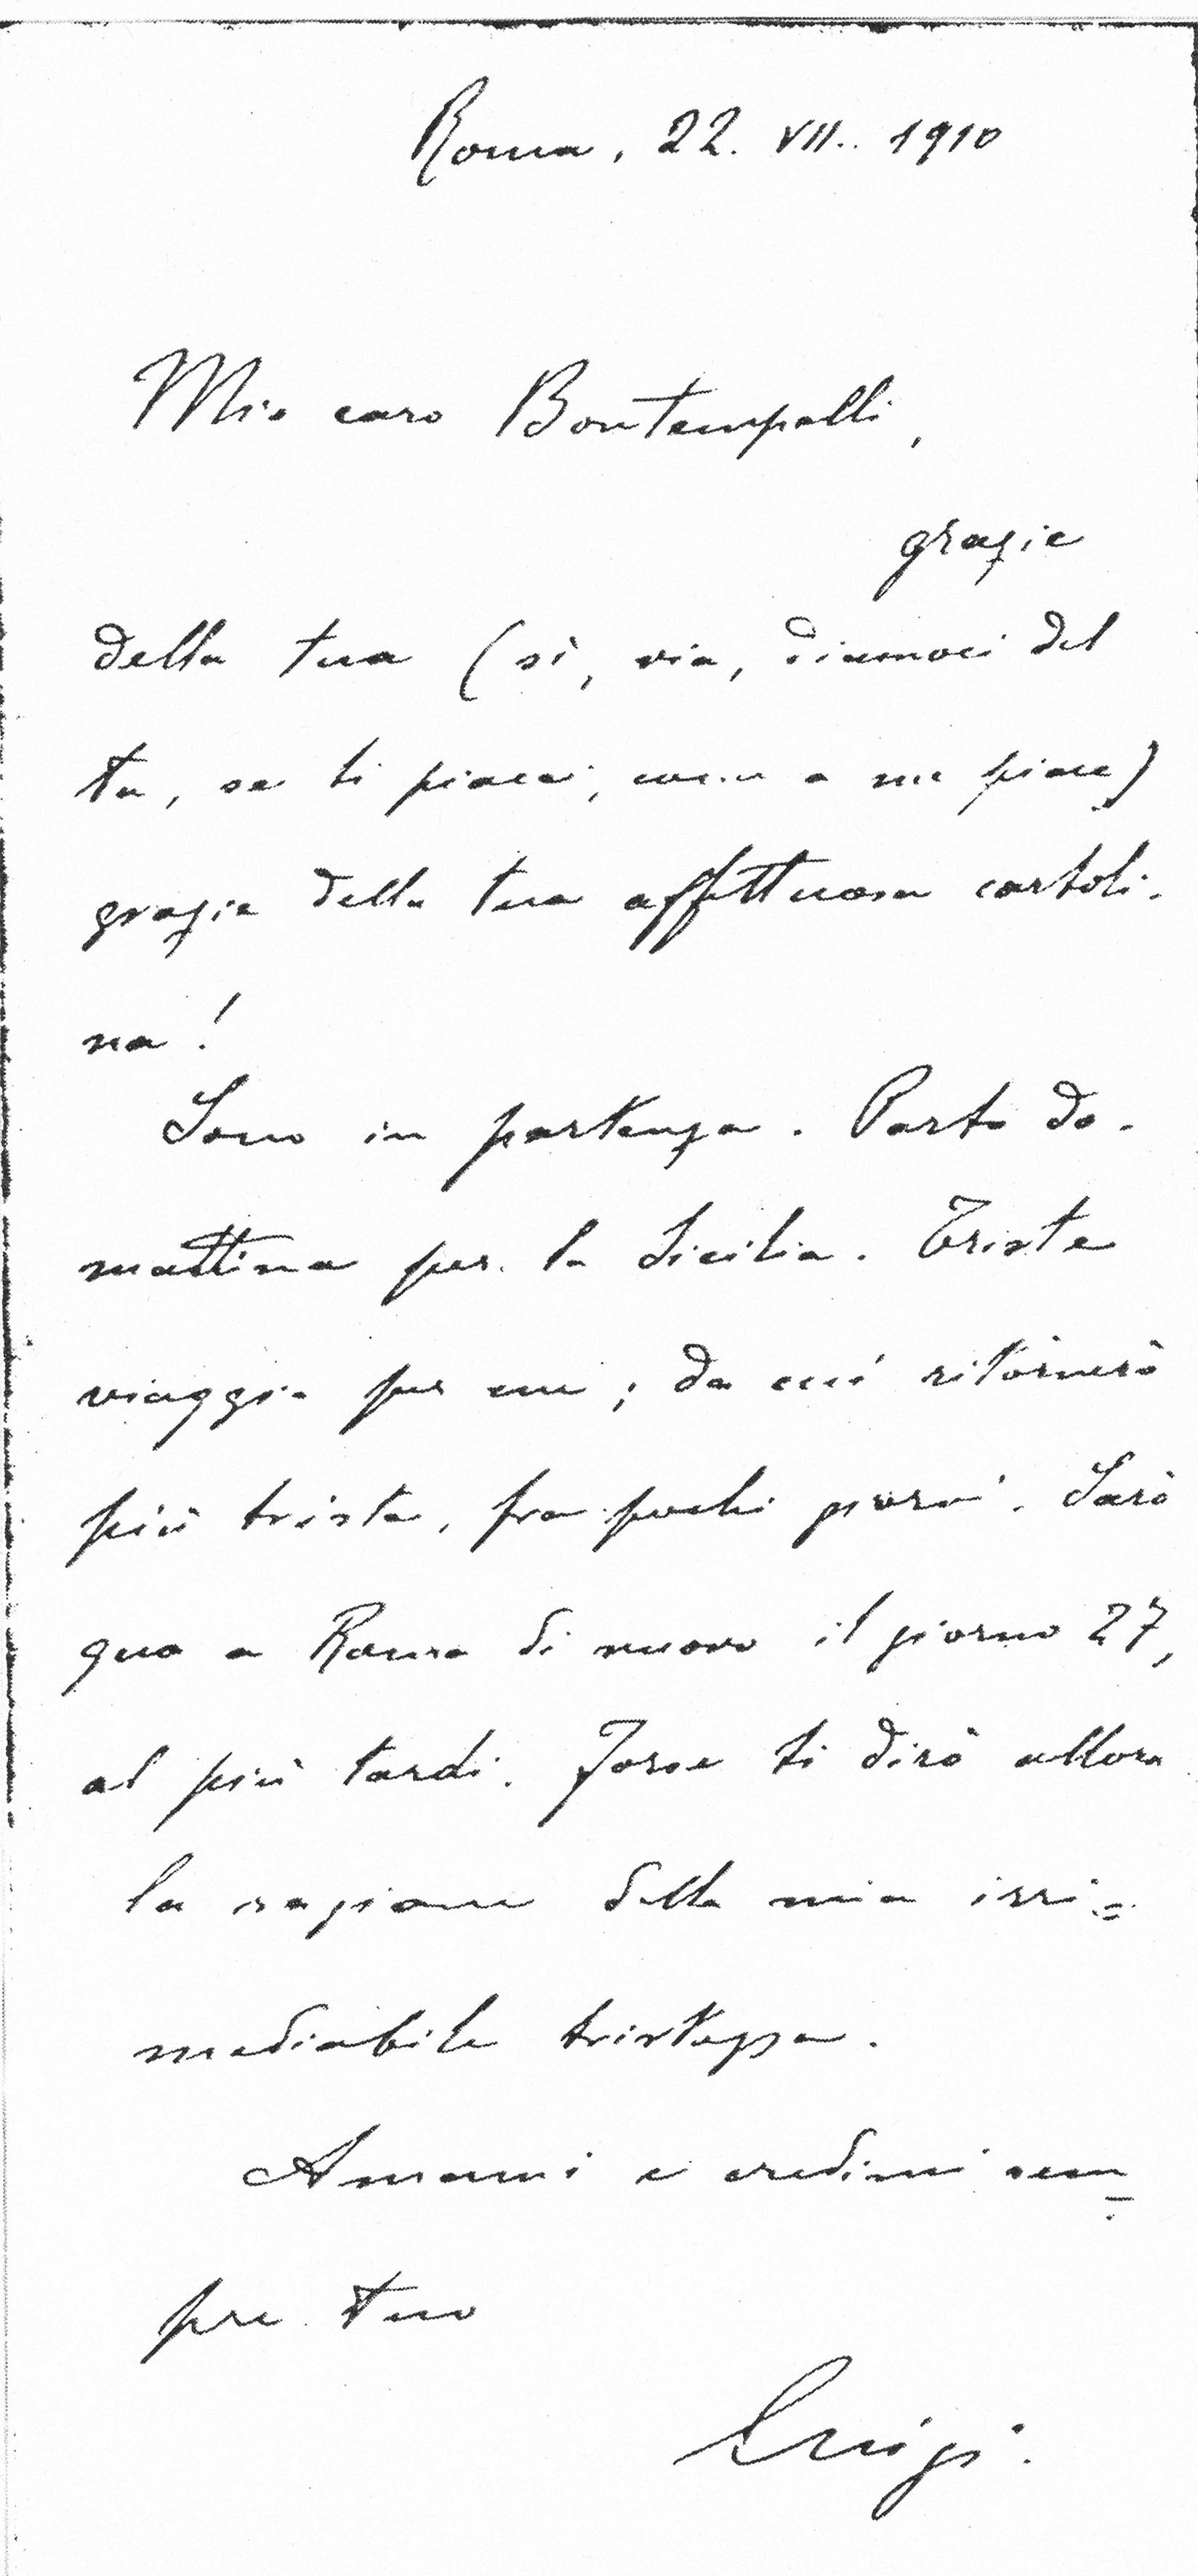 Roma, 22. VII. 1910
Mio caro Bontempelli,
grazie
della tua (sì, via, diamoci del
tu, se ti piace, come a me piace)
grazie della tua affettuosa cartoli-
na!
Sono in partenza. Parto do-
mattina per la Sicilia. Triste
viaggio per me; da cui ritornerò
più triste, fra pochi giorni. Sarò
qua a Roma di nuovo il giorno 27,
al più tardi. Forse ti dirò allora
la ragione della mia irri=
mediabile tristezza.
Amami e credimi sem
pre tuo
Luigi.